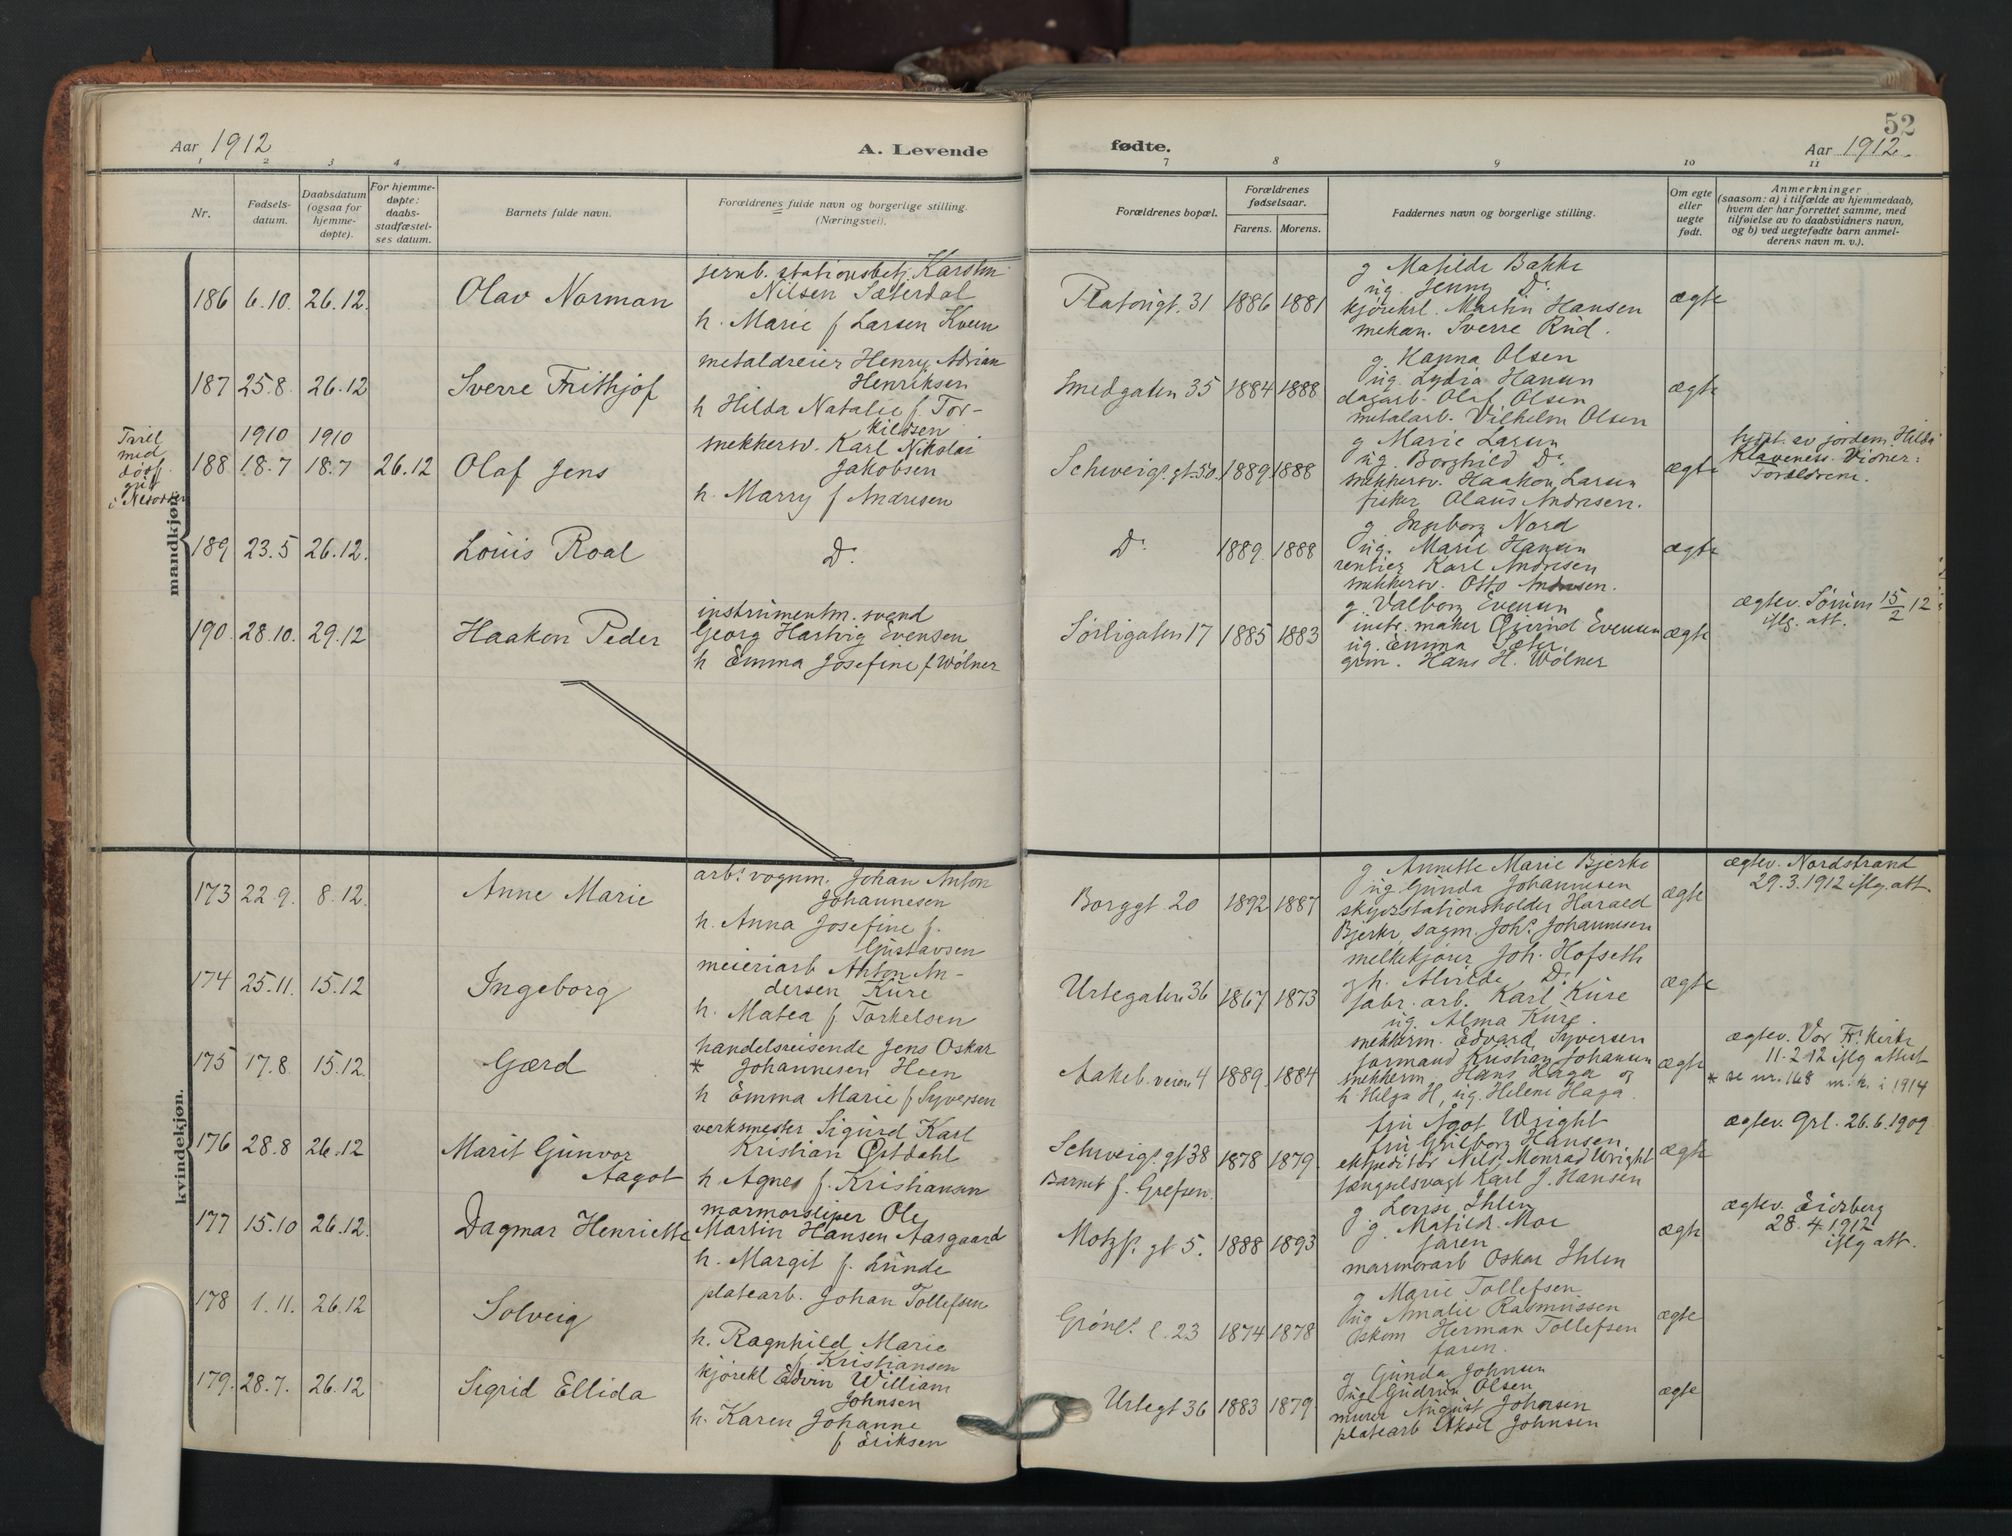 52
Aar 1912
A. Levende
fødte.
Aar 1912.
1 2 3 4 7 8 9 10 11
Nr.
Fødsels-
datum.
Daabsdatum
(ogsaa for
hjemme-
døpte).
For hjemme-
døpte:
daabs-
stadfæstel-
ses datum.
Barnets fulde navn.
Forældrenes fulde navn og borgerlige stilling.
(Næringsvei).
Forældrenes bopæl.
Forældrenes
fødselsaar.
Farens. Morens.
Faddernes navn og borgerlige stilling.
Om egte
eller
uegte
født.
Anmerkninger
(saasom: a) i tilfælde av hjemmedaab,
hvem der har forrettet samme, med
tilføielse av to daabsvidners navn,
og b) ved uegtefødte barn anmel-
derens navn m. v.).
mandkjøn.
186 6.10. 26.12. Olav Norman
jernb. stationsbetj. Karsten
Nilsen Sæterdal
h. Marie f. Larsen Kveen
Platousgt. 31 1886 1881
g Matilde Bakke
ug. Jenny Do
kjørekrl. Martin Hansen
mekan. Sverre Rud.
ægte
187 25.8. 26.12 Sverre Frithjof
metaldreier Henry Adrian
Henriksen
h Hilda Natalie f. Tor-
kildsen
Smedgaten 35 1884 1888
g. Hanna Olsen
ug. Lydia Hansen
dagarb. Olaf Olsen
metalarb. Vilhelm Olsen
ægte
med
i Nesodden
1910 1910
188 18.7 18.7 26.12 Olaf Jens
snekkersv. Karl Nikolai
Jakobsen
h. Marry f Andresen
Schweigs. gt. 50. 1889 1888
g Marie Larsen
ug. Borghild Do
snekkersv. Haakon Larsen
fisker Olaus Andresen.
ægte
hjdt. av jordem. Hilda
Klaveness. Vidner:
Forældrene.
189 23.5 26.12. Louis Roal
Do
Do 1889. 1888
g. Ingeborg Nord
ug. Marie Hansen
rentier Karl Andresen
snekkersv. Otto Andresen.
ægte
190. 28.10. 29.12 Haakon Peder
instrumentm. svend
Georg Hartvig Evensen
h Emma Josefine f Wölner
Sørligaten 17 1885 1883
g. Valborg Evensen
instr. maker Øivind Evensen
ug. Emma Sæter.
grm. Hans H. Wölner
ægte
ægtev. Sørum 15/2 12
iflg. att.
kvindekjøn.
173 22.9. 8.12. Anne Marie
arb. vognm. Johan Anton
Johannesen
h. Anna Josefine f.
Gustavsen
Borggt. 20 1892 1887
g Annette Marie Bjerke
ug Gunda Johannesen
skydsstationsholder Harald
Bjerke, sagm. Johs. Johannesen
ægte
ægtev. Nordstrand
29.3.1912 iflg. att.
174 25.11. 15.12 Ingeborg
meieriarb Anton An-
dersen Kure
h. Matea f Torkelsen
Urtegaten 36 1867 1873
melkekjører Joh. Hofseth
og h. Alvilde Do
fabr. arb. Karl Kure
ug. Alma Kure
ægte
175 17.8. 15.12. Gærd
handelsreisende Jens Oskar
* Johannesen Heen
h Emma Marie f Syversen
Aakeb. veien 4 1889. 1884
snekkerm. Edvard Syversen
formand Kristian Johansen
snekkerm Hans Haga og
h Helga H, ug. Helene Haga.
ægte
ægtev. Vor Fr. Kirke
11.2.12 iflg attest
* se nr. 168 m. k. i 1914
176 28.8 26.12 Marit Gunvor
Aagot
verksmester Sigurd Karl
Kristian Østdahl
h. Agnes f. Kristiansen
Schweigs. gt 38 1878 1879.
Barnet f. Grefsen.
fru Agot Wright
fru Gulborg Hansen.
ekspeditør Nils Monrad Wright
fængselsvagt Karl J. Hansen
ægte
ægtev. Grl. 26.6.1909
177 15.10 26.12. Dagmar Henriette
marmorsliper Ole
Martin Hansen Aasgaard
h. Margit f. Lunde
Motzf. gt 5. 1888 1893
g Lovise Ihlen
g. Matild. Moe
faren
marmorarb Oskar Ihlen
ægte
ægtev. Eidsberg
28.4 1912
iflg att.
178 1.11. 26.12 Solveig
platearb. Johan Tollefsen
h. Ragnhild Marie
f. Kristiansen
Grønl. l. 23 1874 1878
g Marie Tollefsen
ug Amalie Rasmussen
Herman Tollefsen
faren.
ægte
179. 28.7. 26.12 Sigrid Ellida
kjørekl Edvin William
Johnsen
h. Karen Johanne
f Eriksen
Urtegt 36 1883 1879
g Gunda Johnsen
ug. Gudrun Olsen
murer August Johnsen
platearb Aksel Johnsen
ægte